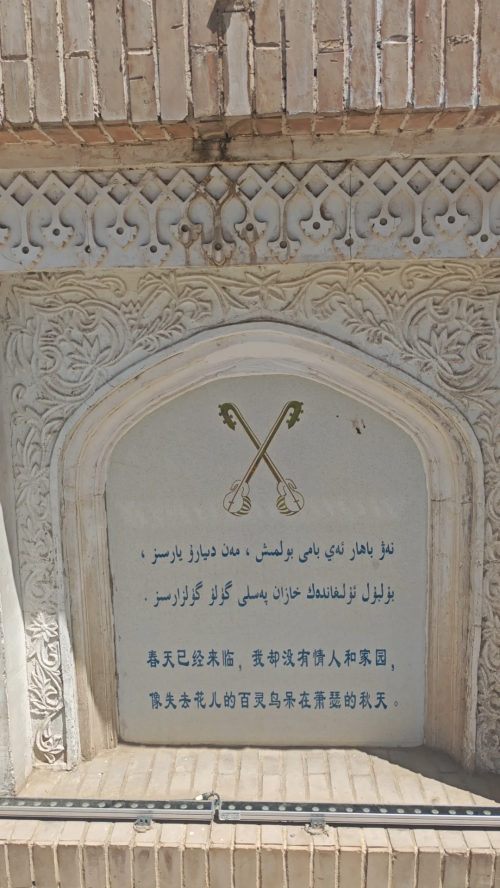 نەۋ باھار ئەي بامى بولمىش ، مەن دىيارۇ يارسىز ،
بۇلبۇل ئۇلغاندەك خازان پەسلى گۈلۈ گۈلزارسىز .
春天已经来临，我却没有情人和家园，
像失去花儿的百灵鸟呆在萧瑟的秋天。